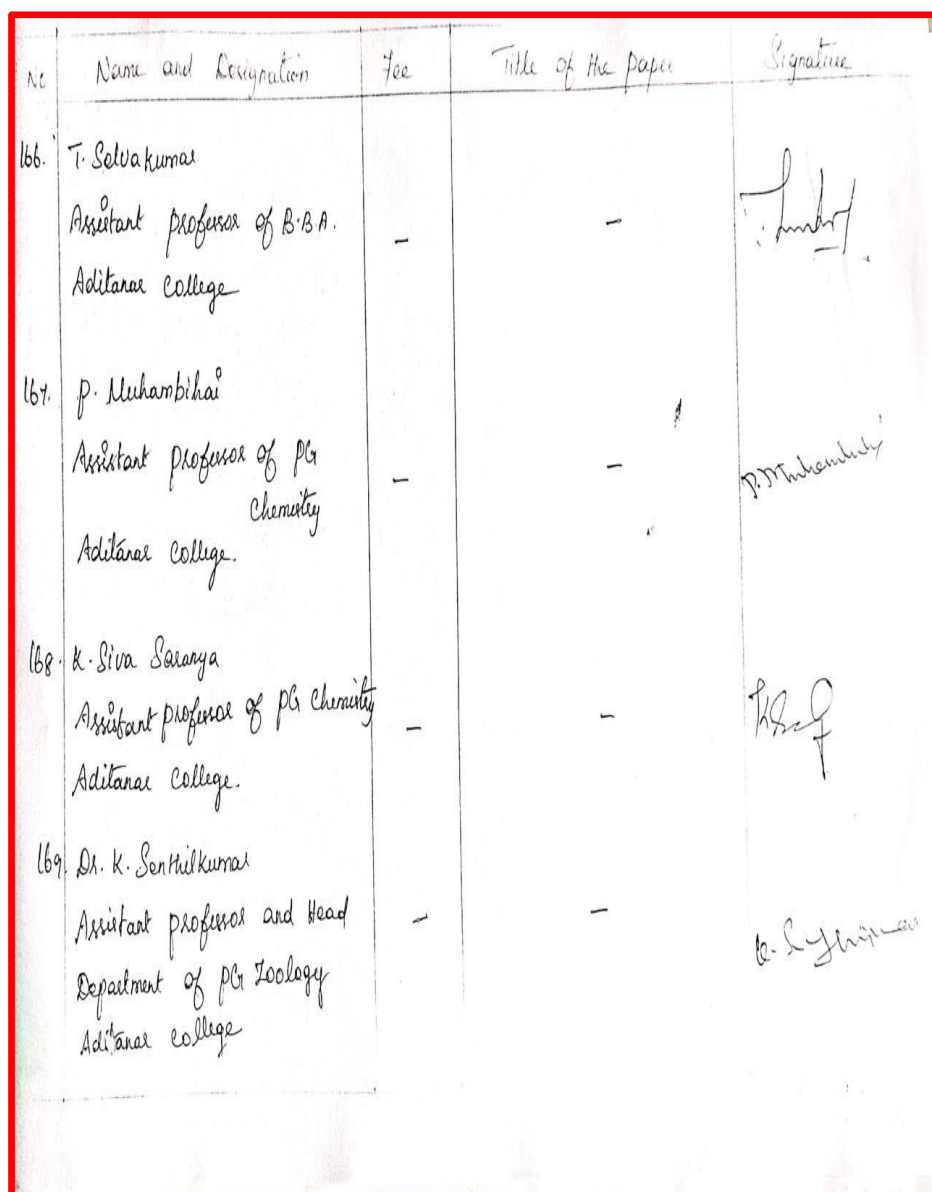 No Name and Designation Fee Title of the paper Signature
166. T. Selvakumar
Assistant professor of B.B.A. - -
Aditanar College
167. P. Muhambihai
Assistant professor of PG - -
Chemistry
Aditanar College.
168. K. Siva Saranya
Assistant professor of PG Chemistry - -
Aditanar College.
169. Dr. K. Senthilkumar
Assistant professor and Head - -
Department of PG Zoology
Aditanar college